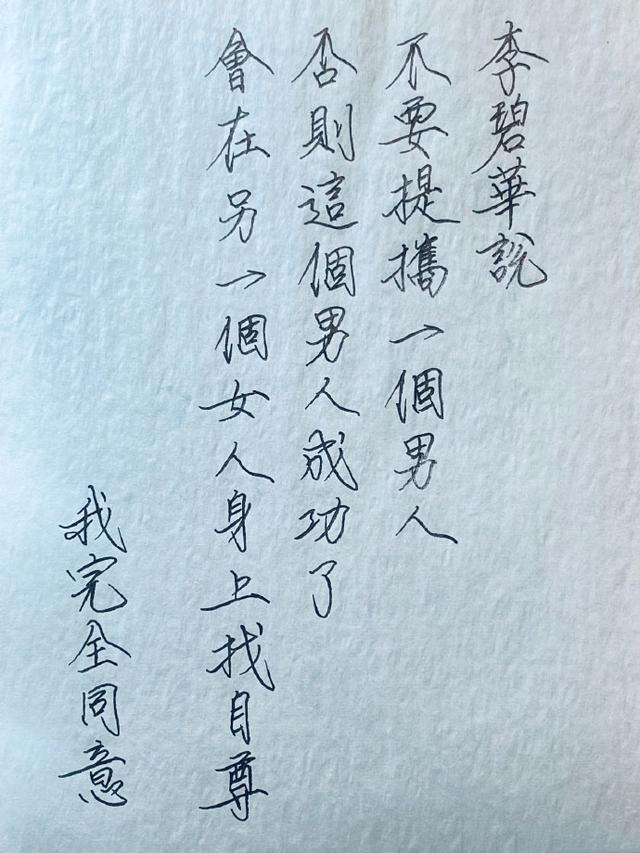 李碧華說
不要提攜一個男人
否則這個男人成功了
會在另一個女人身上找自尊
我完全同意